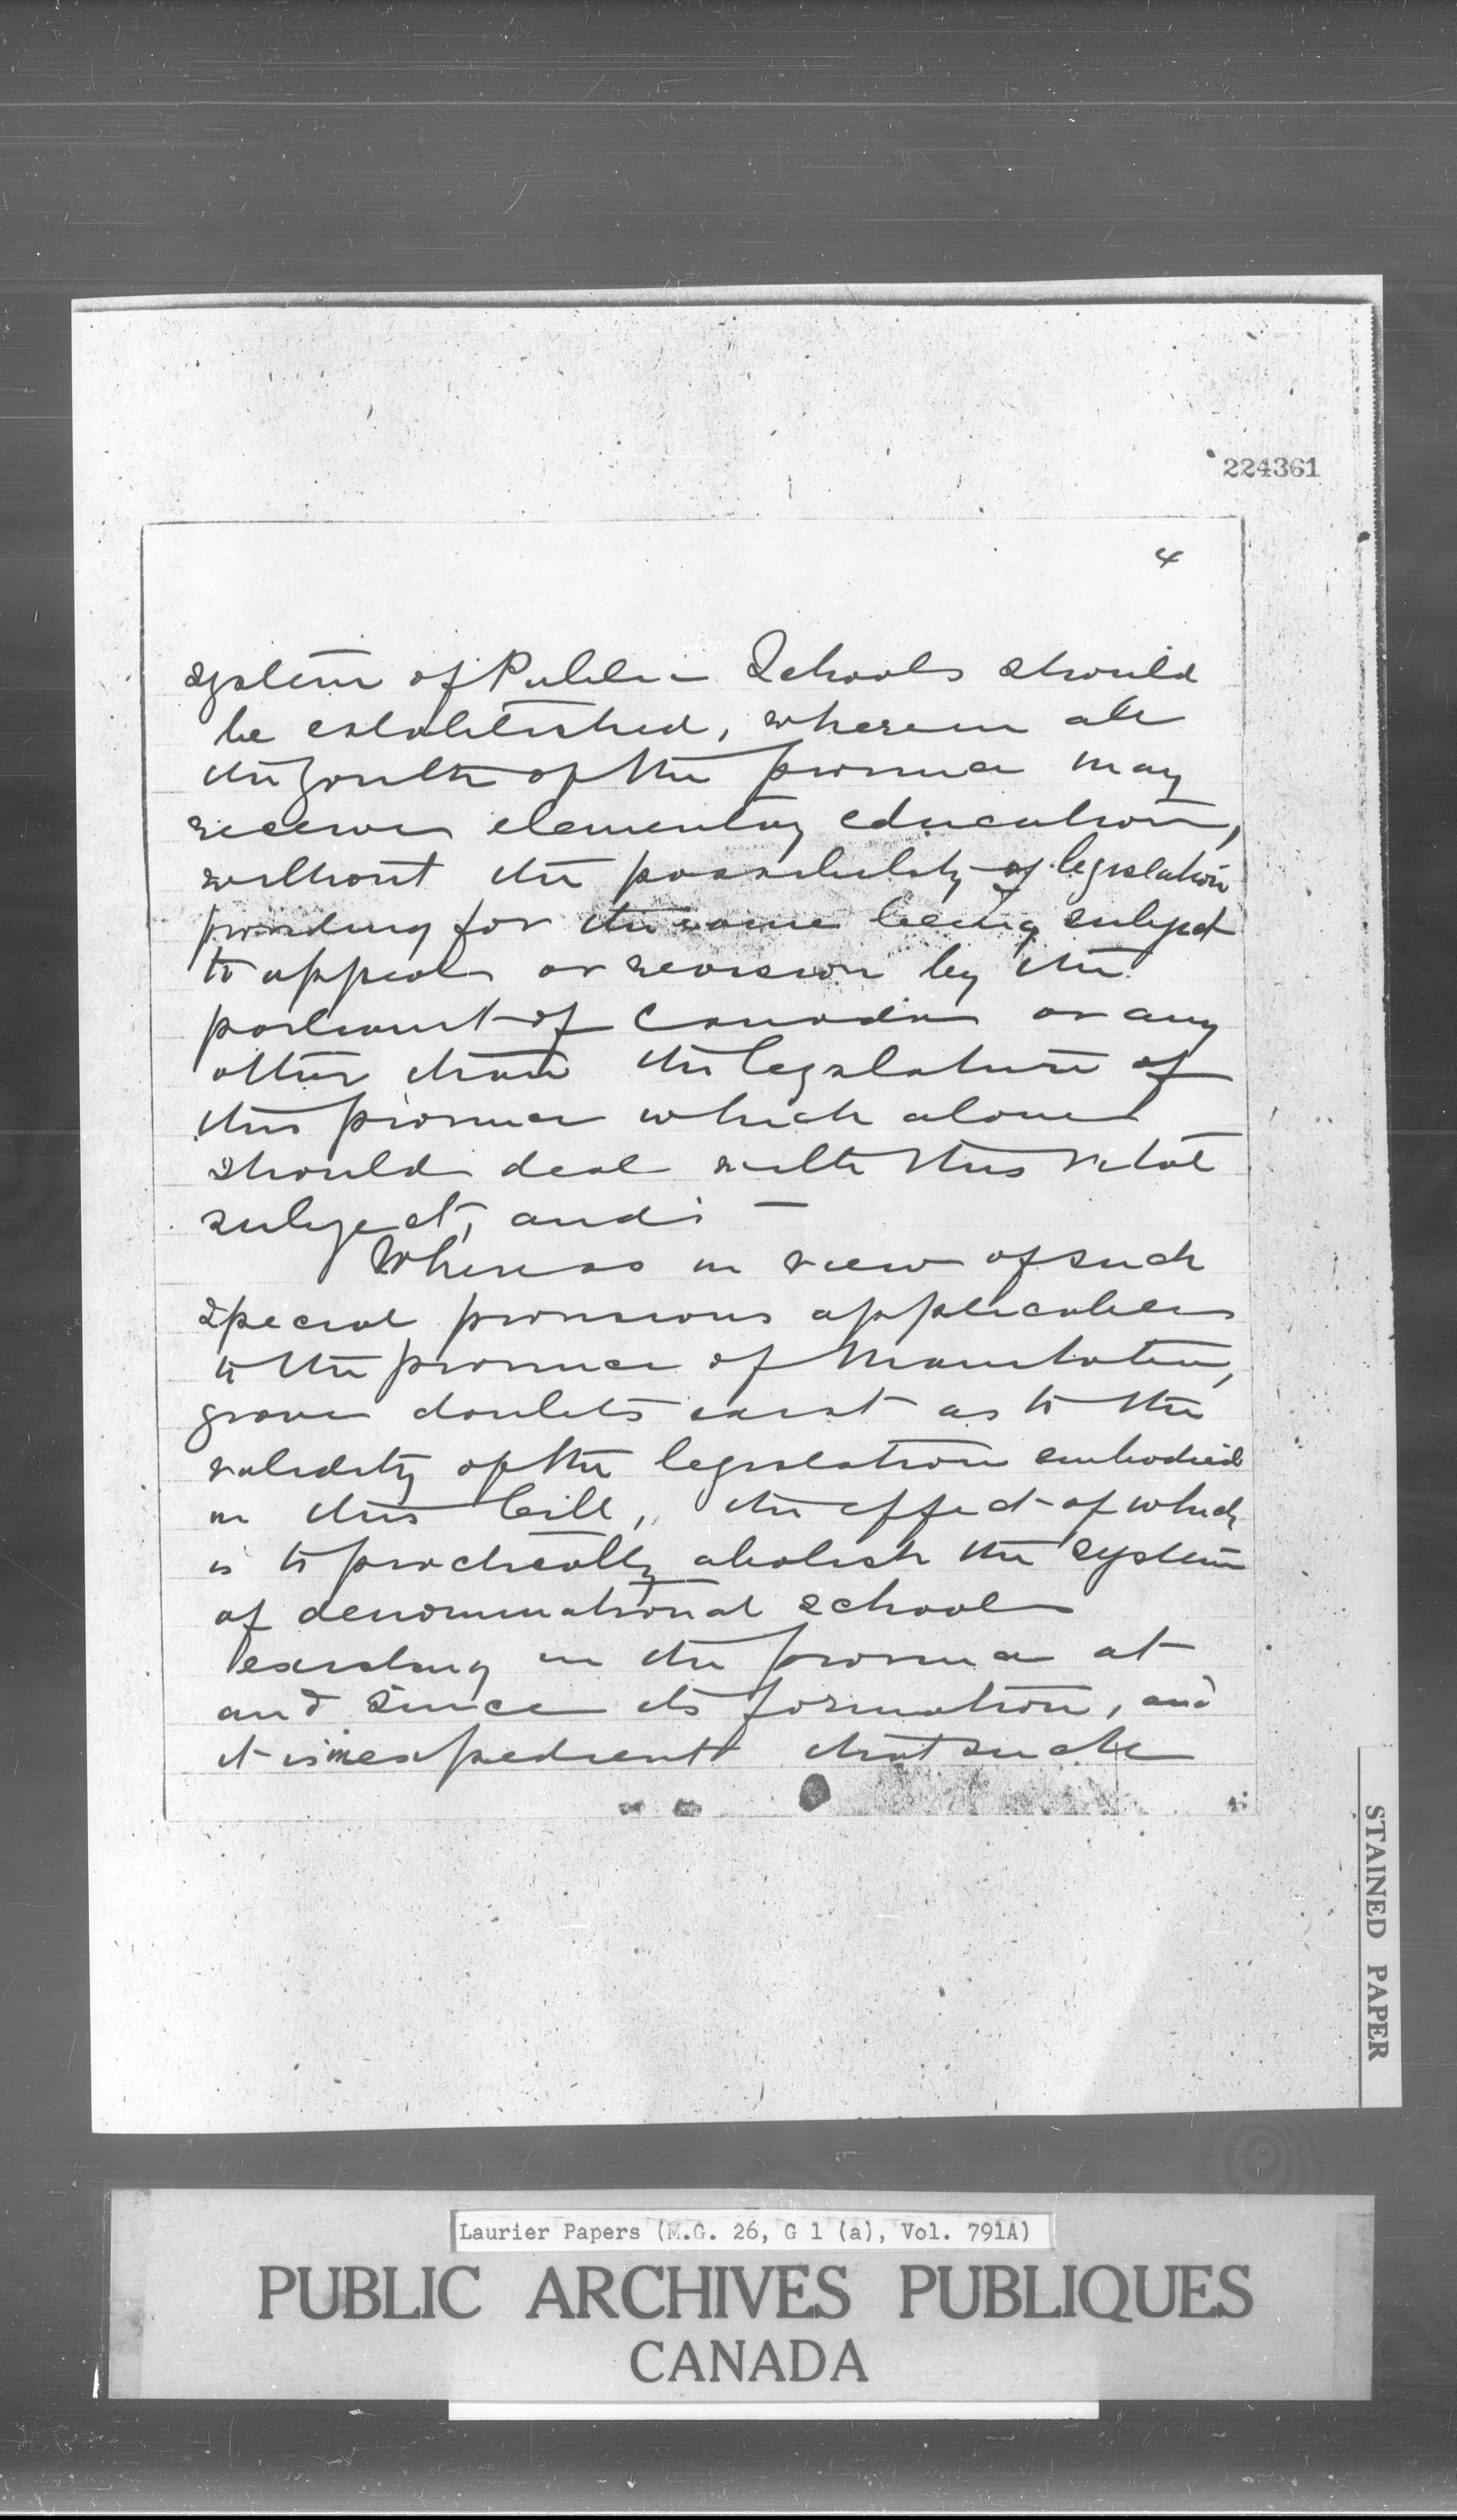 224361
4
system of Public Schools should
be established, wherein all
the youth of the province may
receive elementary education,
without the possibility of legislation
providing for the same being subject
to appeal or revision by the
parliament of Canada or any
other than the legislature of
this province which alone
should deal with this vital
subject, and: —
Whereas in view of such
special provisions applicable
to the province of Manitoba,
grave doubts exist as to the
validity of the legislation embodied
in this bill, the effect of which
is to practically abolish the system
of denominational schools
existing in the province at
and since its formation, and
it is inexpedient that such
STAINED PAPER
Laurier Papers (M.G. 26, G 1 (a), Vol. 791A)
PUBLIC ARCHIVES PUBLIQUES
CANADA